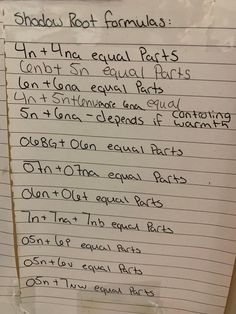 Shadow Root formulas:
4n + 4na equal Parts
6nbt 5n equal Parts
6n + 6na equal Parts
4n + 5n + 6na equal
5n + 6na - depends if controling
warmth
06BG + 06n equal Parts
07n + 07na equal Parts
06n + 06t equal Parts
7n + 7na + 7nb equal Parts
05n + 6p equal Parts
05n + 6v equal Parts
05n + 7NW equal Parts